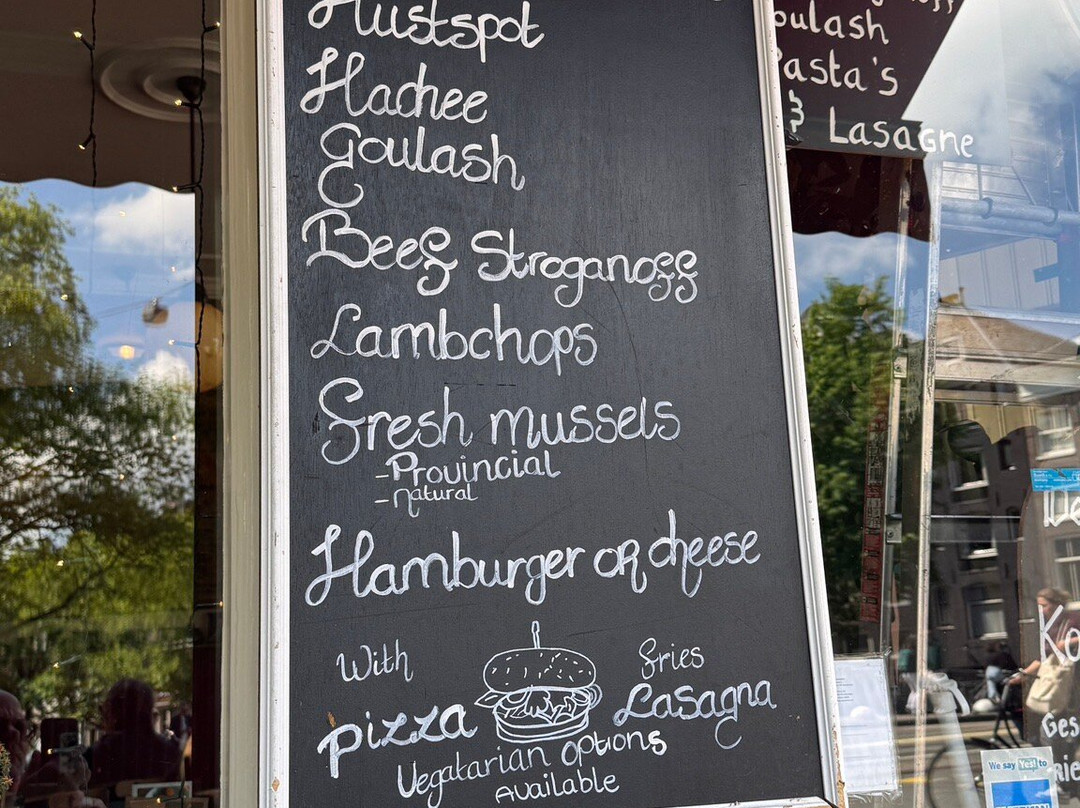 Hustspot
Hachee
Goulash
Beef Stroganoff
Lambchops
Fresh mussels
- Provincial
- natural
Hamburger or cheese
With
fries
pizza
Lasagna
Vegatarian options
Available
oulash
asta's
& Lasagne
We say Yes! to
Ko
Ges